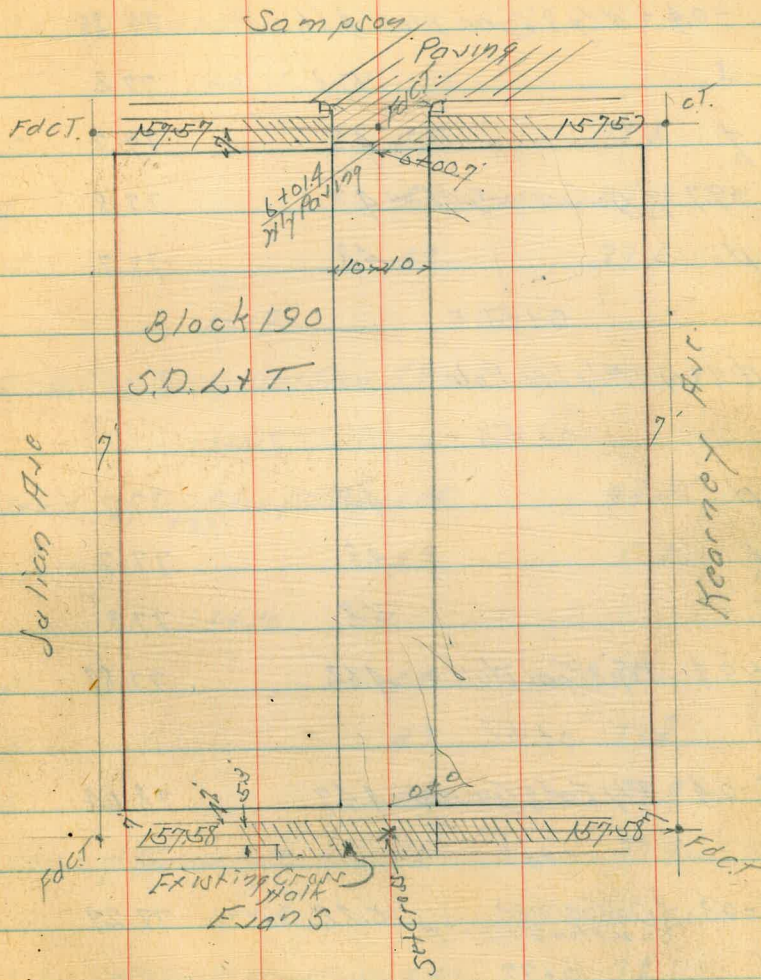 Sampson
Paving
Fd C.T.
157.57
7'
Fd C.T.
157.57
C.T.
6+00.7
6+01.4
Wly Paving
10 10
Block 190
S.D. L & T.
Julian Ave
7'
7'
Kearney Ave.
0+0
7'
157.58
7'
5.5'
157.58
7'
Fd C.T.
Fd C.T.
Existing Cross
Walk
Evans
Set Cross